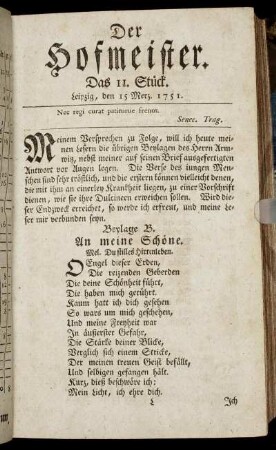 Der
Hofmeister.
Das 11. Stück.
Leipzig, den 15 Merz. 1751.
Nec regi curat patiturue frenum.
Senec. Trag.
Meinem Versprechen zu Folge, will ich heute mei-
nen Lesern die übrigen Beylagen des Herrn Arm-
witz, nebst meiner auf seinen Brief ausgefertigten
Antwort vor Augen legen. Die Verse des jungen Men-
schen sind sehr tröstlich, und die erstern können vielleicht denen,
die mit ihm an einerley Krankheit liegen, zu einer Vorschrift
dienen, wie sie ihre Dulcineen erweichen sollen. Wird die-
ser Endzweck erreichet, so werde ich erfreut, und meine Le-
ser mir verbunden seyn.
Beylage B.
An meine Schöne.
Mel. Du stilles Hirtenleben.
O Engel dieser Erden,
Die reizenden Geberden
Die deine Schönheit führt,
Die haben mich gerührt.
Kaum hatt ich dich gesehen
So wars um mich geschehen,
Und meine Freyheit war
In äußerster Gefahr,
Die Stärke deiner Blicke,
Verglich sich einem Stricke,
Der meinen treuen Geist befällt,
Und selbigen gefangen hält.
Kurz, dieß beschwöre ich:
Mein Licht, ich ehre dich.
L Ich